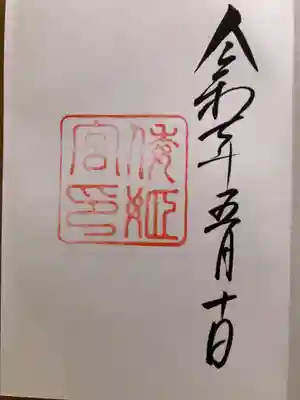 令和元年五月十日
倭姫
宮印